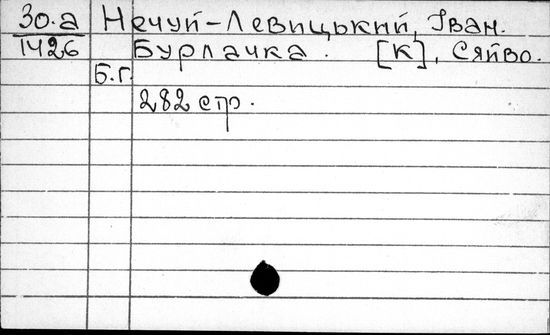 30.а Нечуй-Левицький, Іван.
1426 Бурлачка. [К], Сяйво.
Б.Г.
282 стр.